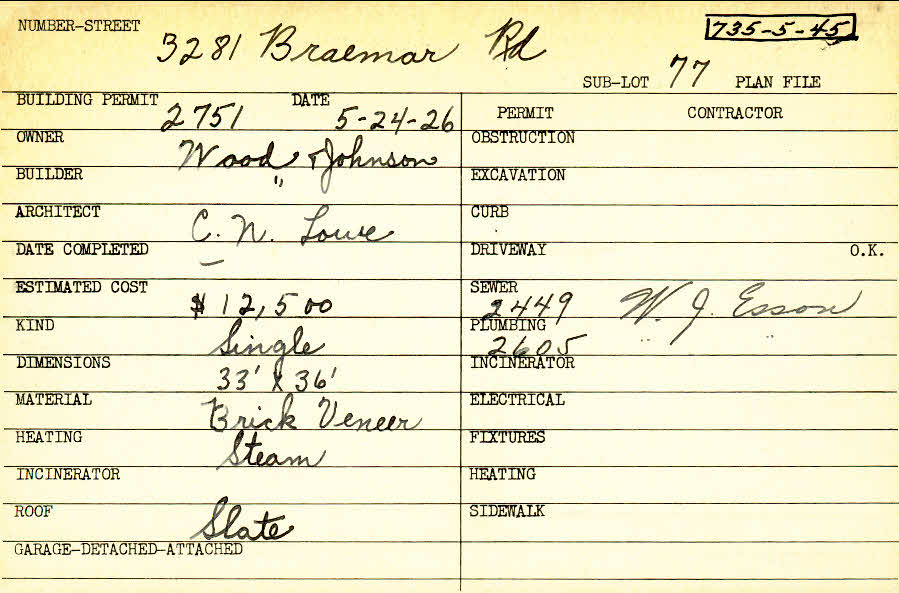 NUMBER-STREET 3281 Braemar Rd 735-5-45
SUB-LOT 77 PLAN FILE
BUILDING PERMIT 2751 DATE 5-24-26
PERMIT CONTRACTOR
OWNER Wood & Johnson
OBSTRUCTION
BUILDER "
EXCAVATION
ARCHITECT C. N. Lowe
CURB
DATE COMPLETED —
DRIVEWAY O.K.
ESTIMATED COST $12,500
SEWER 2449 W. J. Esson
KIND Single
PLUMBING 2605 " "
DIMENSIONS 33' X 36'
INCINERATOR
MATERIAL Brick Veneer
ELECTRICAL
HEATING Steam
FIXTURES
INCINERATOR
HEATING
ROOF Slate
SIDEWALK
GARAGE-DETACHED-ATTACHED